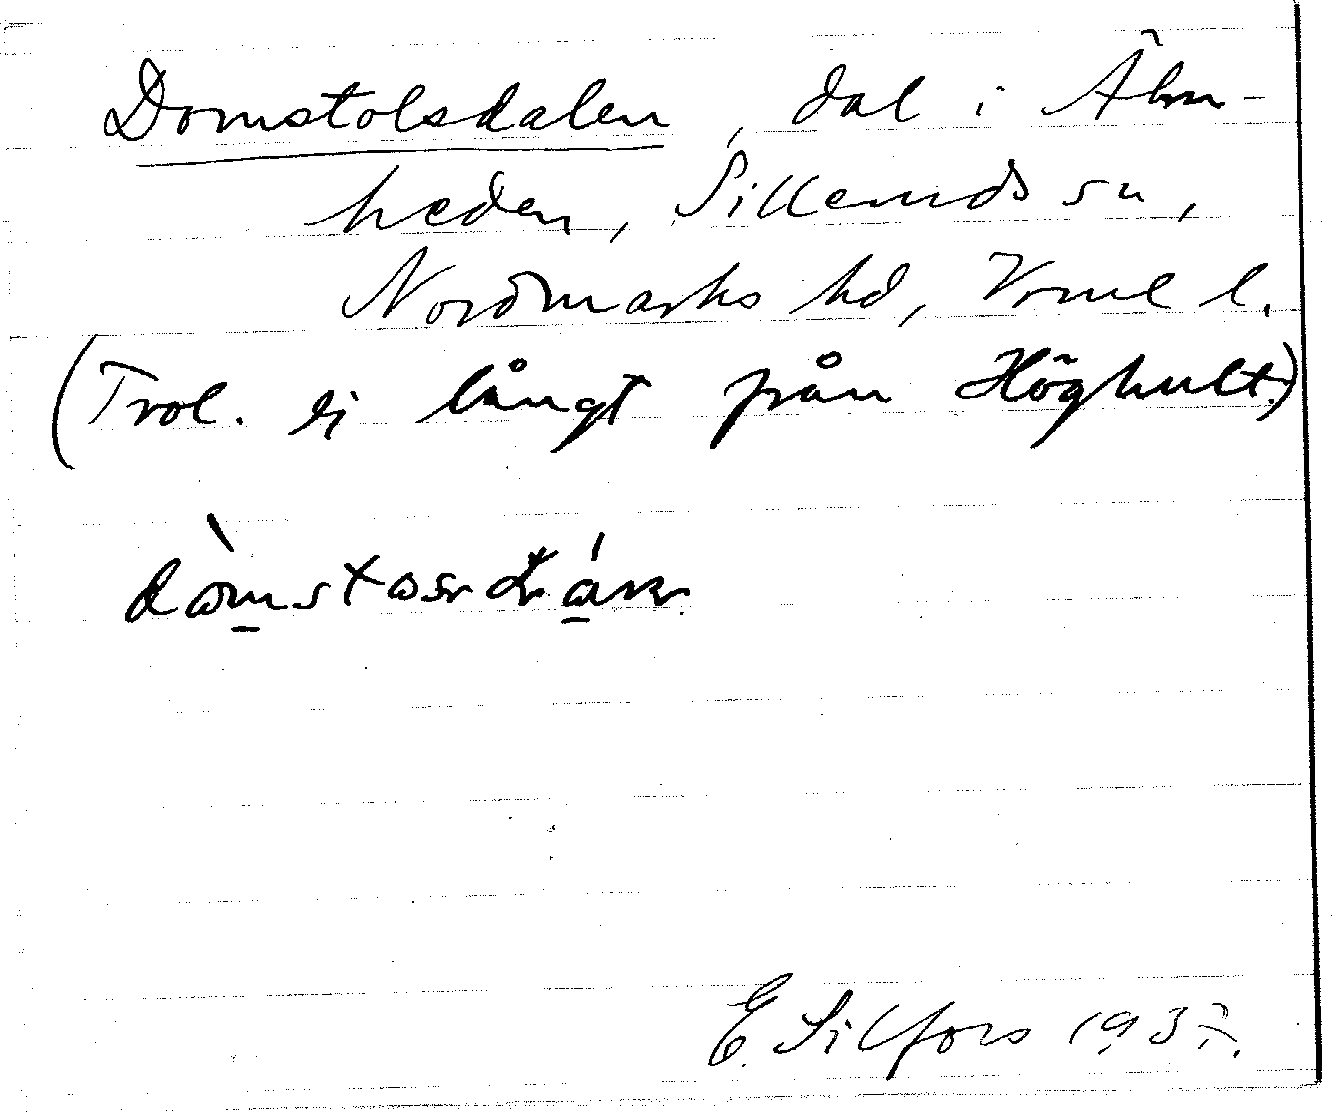 Domstolsdalen, dal i Älm-
heden, Silleruds sn,
Nordmarks hd, Vrml l.
(Trol. ej långt från Höghult.)
E. Silfors 1937.